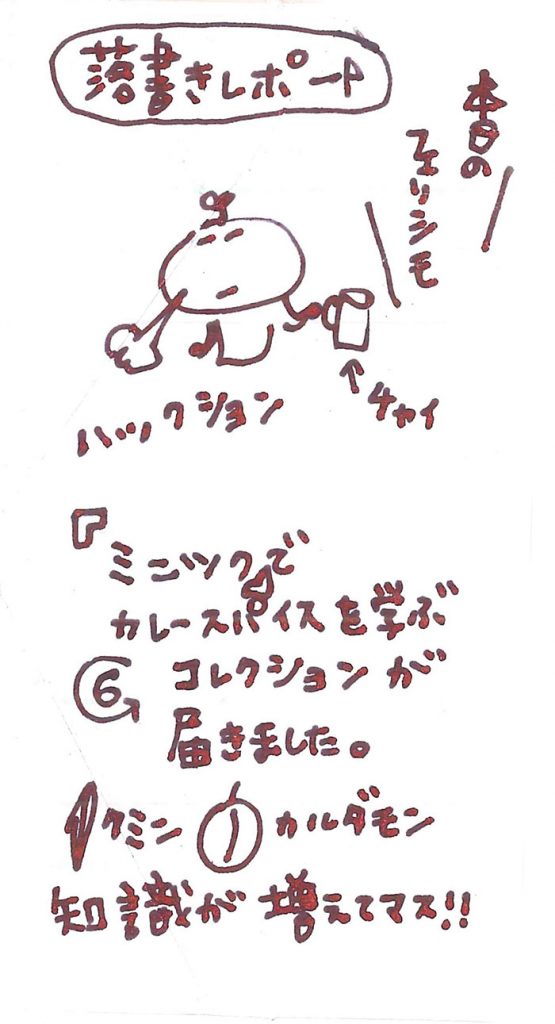 落書きレポート
本日の
フェリシモ
ハックション
↑チャイ
『ミニツクで
カレースパイスを学ぶ
6 コレクションが
届きました。
クミン カルダモン
知識が増えてマス!!